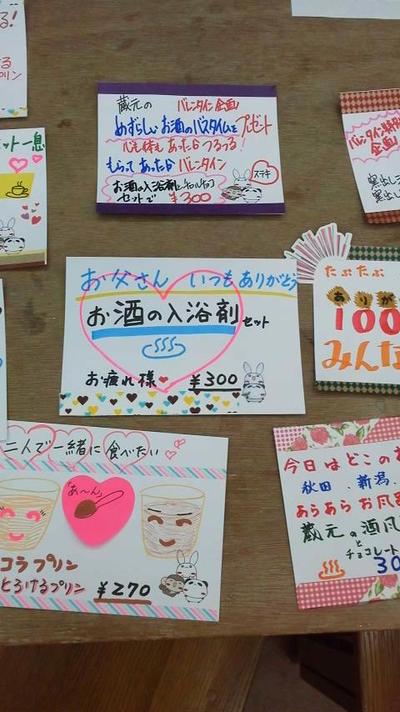 る!
プリン
蔵元の バレンタイン企画
めずらしいお酒のバスタイムをプレゼント
心も体もあったかつるっつる!
もらってあったか バレンタイン
お酒の入浴剤とチロルチョコ
セットで ¥300
ステキ
ット一息
バレンタイン特別
企画
お父さん いつもありがとう
お酒の入浴剤セット
お疲れ様 ¥300
たぷたぷ
ありが
100
みんな
二人で一緒に食べたい
「あ〜ん」
コラプリン
とろけるプリン ¥270
今日はどこのお
秋田 新潟
あらあらお風
蔵元の酒風
と
チョコレート
30